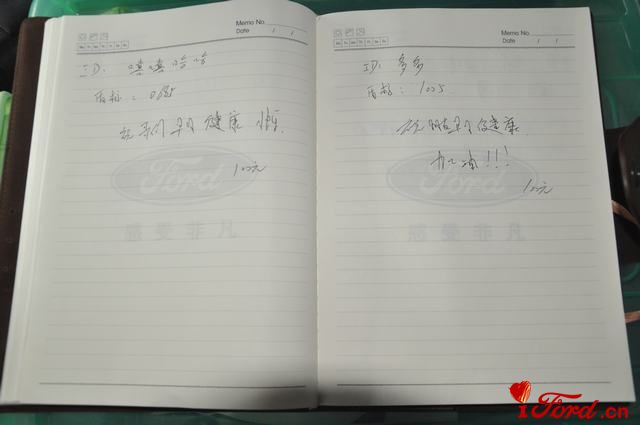 Memo No.
Date / /
ID: 嘻嘻哈哈
盾标: 0685
祝 早日健康
100元
Ford
感受非凡
Memo No.
Date / /
ID: 多多
盾标: 1005
祝朋友早日健康
加油!!!
100元
Ford
感受非凡
iFord.cn